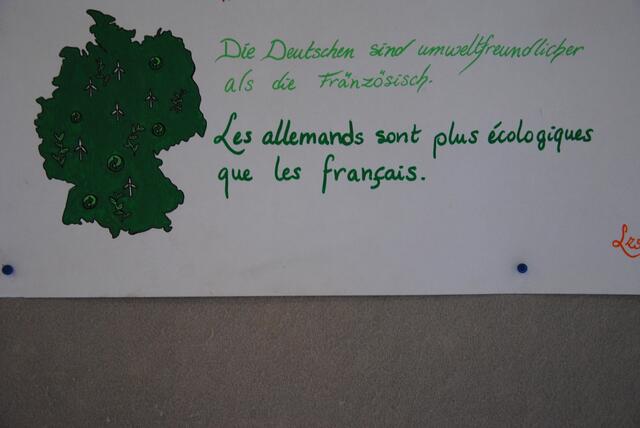 Die Deutschen sind umweltfreundlicher
als die Fränzösisch.
Les allemands sont plus écologiques
que les français.